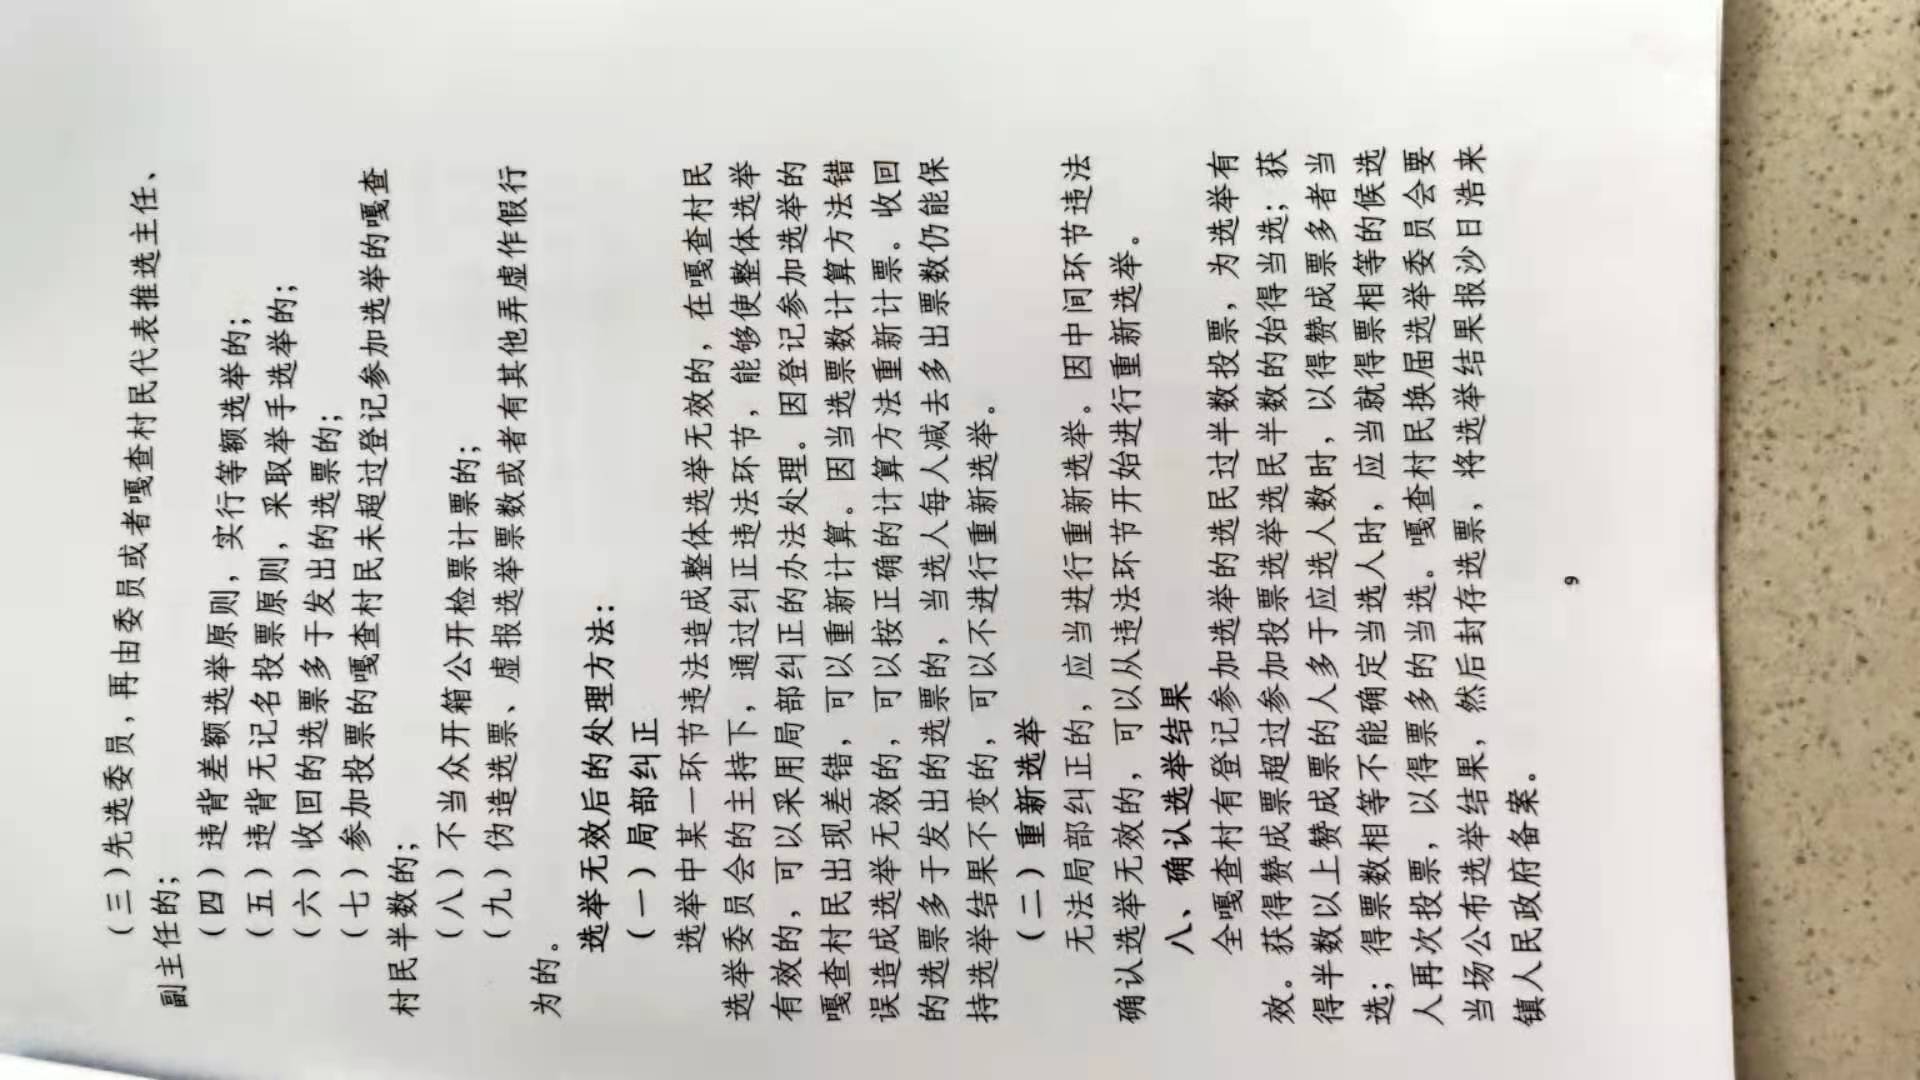 （三）先选委员,再由委员或者嘎查村民代表推选主任、
副主任的；
（四）违背差额选举原则，实行等额选举的；
（五）违背无记名投票原则，采取举手选举的；
（六）收回的选票多于发出的选票的；
（七）参加投票的嘎查村民未超过登记参加选举的嘎查
村民半数的；
（八）不当众开箱公开检票计票的；
（九）伪造选票、虚报选举票数或者有其他弄虚作假行
为的。
选举无效后的处理方法：
（一）局部纠正
选举中某一环节违法造成整体选举无效的，在嘎查村民
选举委员会的主持下，通过纠正违法环节，能够使整体选举
有效的，可以采用局部纠正的办法处理。因登记参加选举的
嘎查村民出现差错，可以重新计算。因当选票数计算方法错
误造成选举无效的，可以按正确的计算方法重新计票。收回
的选票多于发出的选票的，当选人每人减去多出票数仍能保
持选举结果不变的，可以不进行重新选举。
（二）重新选举
无法局部纠正的，应当进行重新选举。因中间环节违法
确认选举无效的，可以从违法环节开始进行重新选举。
八、确认选举结果
全嘎查村有登记参加选举的选民过半数投票，为选举有
效。获得赞成票超过参加投票选举选民半数的始得当选；获
得半数以上赞成票的人多于应选人数时，以得赞成票多者当
选；得票数相等不能确定当选人时，应当就得票相等的候选
人再次投票，以得票多的当选。嘎查村民换届选举委员会要
当场公布选举结果，然后封存选票，将选举结果报沙日浩来
镇人民政府备案。
9